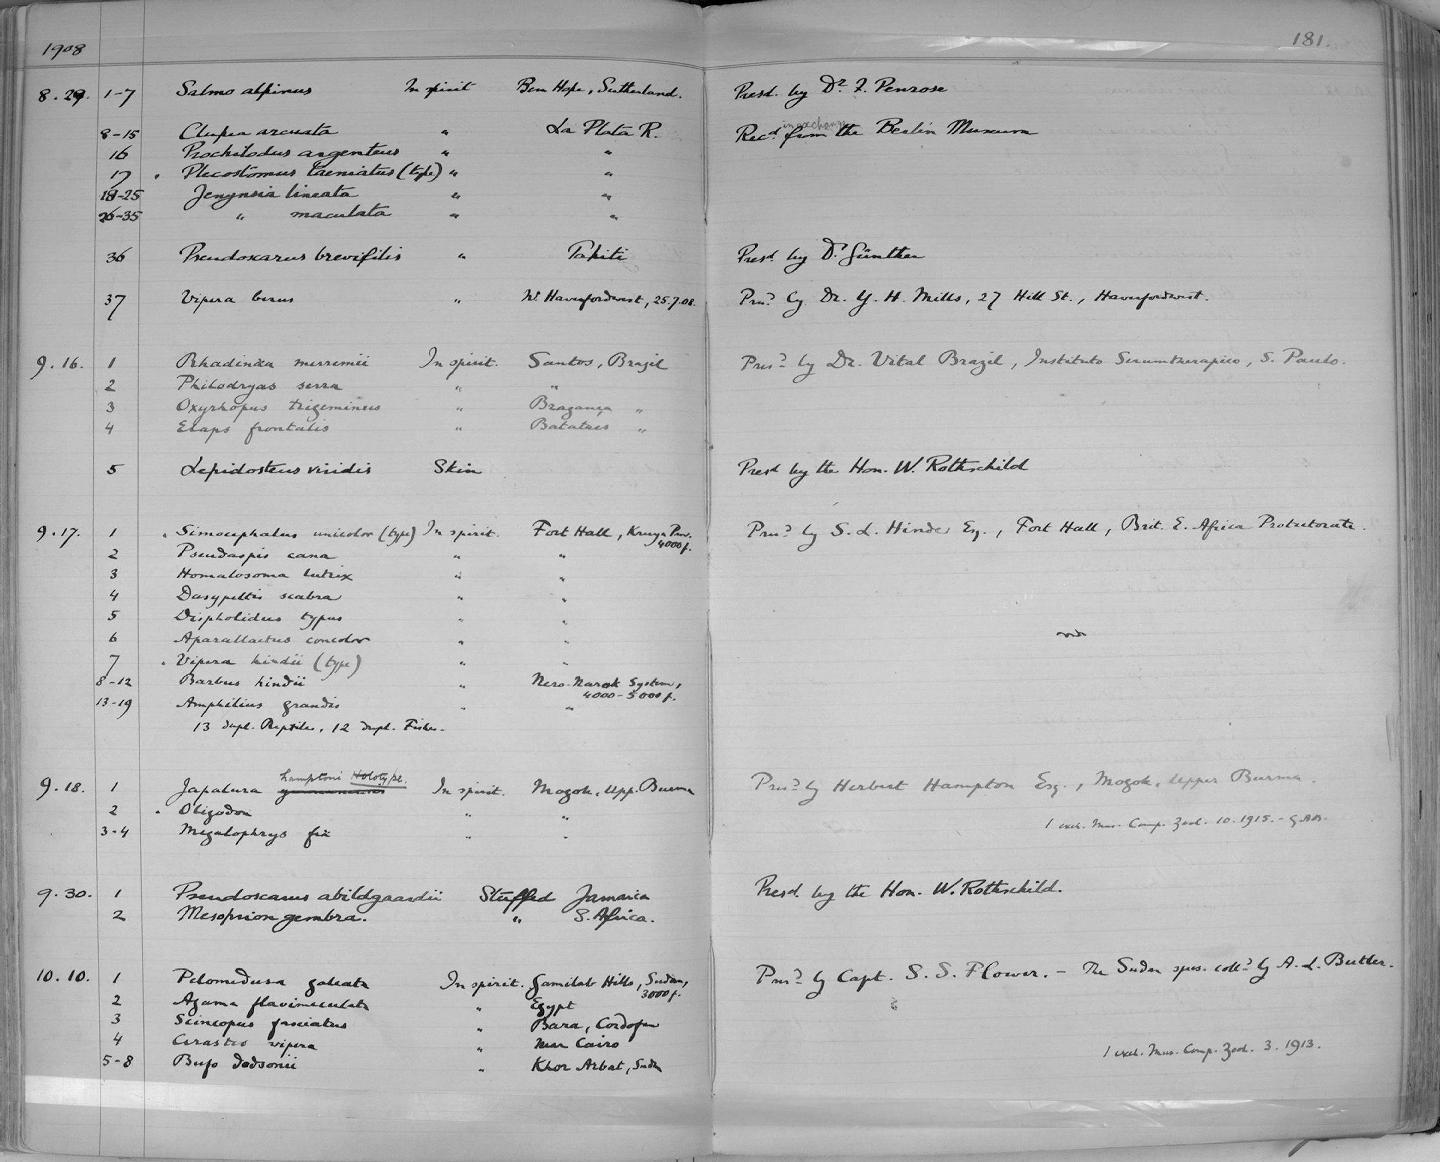 1908
181.
8.29. 1-7 Salmo alpinus In spirit Ben Hope, Sutherland. Presd. by Dr. F. Penrose
8-15 Clupea arcuata " La Plata R. Recd. in exchange from the Berlin Museum
16 Prochilodus argenteus " "
17 Plecostomus taeniatus (type) " "
18-25 Jenynsia lineata " "
26-35 " maculata " "
36 Pseudoscarus brevifilis " Tahiti Presd. by Dr. Günther
37 Vipera berus " Nr Haverfordwest, 25.7.08. Presd. by Dr. Y. H. Mills, 27 Hill St., Haverfordwest.
9.16. 1 Rhadinæa merremii In spirit. Santos, Brazil Presd. by Dr. Vital Brazil, Instituto Serumtherapico, S. Paulo.
2 Philodryas serra " "
3 Oxyrhopus trigeminus " Bragança "
4 Elaps frontalis " Batataes "
5 Lepidosteus viridis Skin Presd by the Hon. W. Rothschild
9.17. 1 Simocephalus unicolor (type) In spirit. Fort Hall, Kenya Prov. 4000 f. Presd. by S. L. Hinde Esq., Fort Hall, Brit. E. Africa Protectorate.
2 Pseudaspis cana " "
3 Homalosoma lutrix " "
4 Dasypeltis scabra " "
5 Dispholidus typus " "
6 Aparallactus concolor " "
7 Vipera hindii (type) " "
8-12 Barbus hindii " Nero-Narok System, 4000-5000 f.
13-19 Amphilius grandis " "
13 dupl. Reptiles, 12 dupl. Fishes.
hamptoni Holotype.
9.18. 1 Japalura In spirit. Mogok, Upp. Burma Presd. by Herbert Hampton Esq., Mogok, Upper Burma.
2 Oligodon " "
1 exch. Mus. Comp. Zool. 10.1915. - G.A.B.
3-4 Megalophrys " "
9.30. 1 Pseudoscarus abildgaardii Stuffed Jamaica Presd by the Hon. W. Rothschild.
2 Mesoprion gembra. " S. Africa.
10.10. 1 Pelomedusa galeata In spirit. Gamilab Hills, Sudan, 3000 f. Presd. by Capt. S. S. Flower. - The Sudan spec. colld. by A. L. Butler.
2 Agama flavimaculata " Egypt
3 Scincopus fasciatus " Bara, Cordofan
4 Cerastes vipera " Near Cairo
5-8 Bufo dodsonii " Khor Arbat, Sudan
1 exch. Mus. Comp. Zool. 3. 1913.